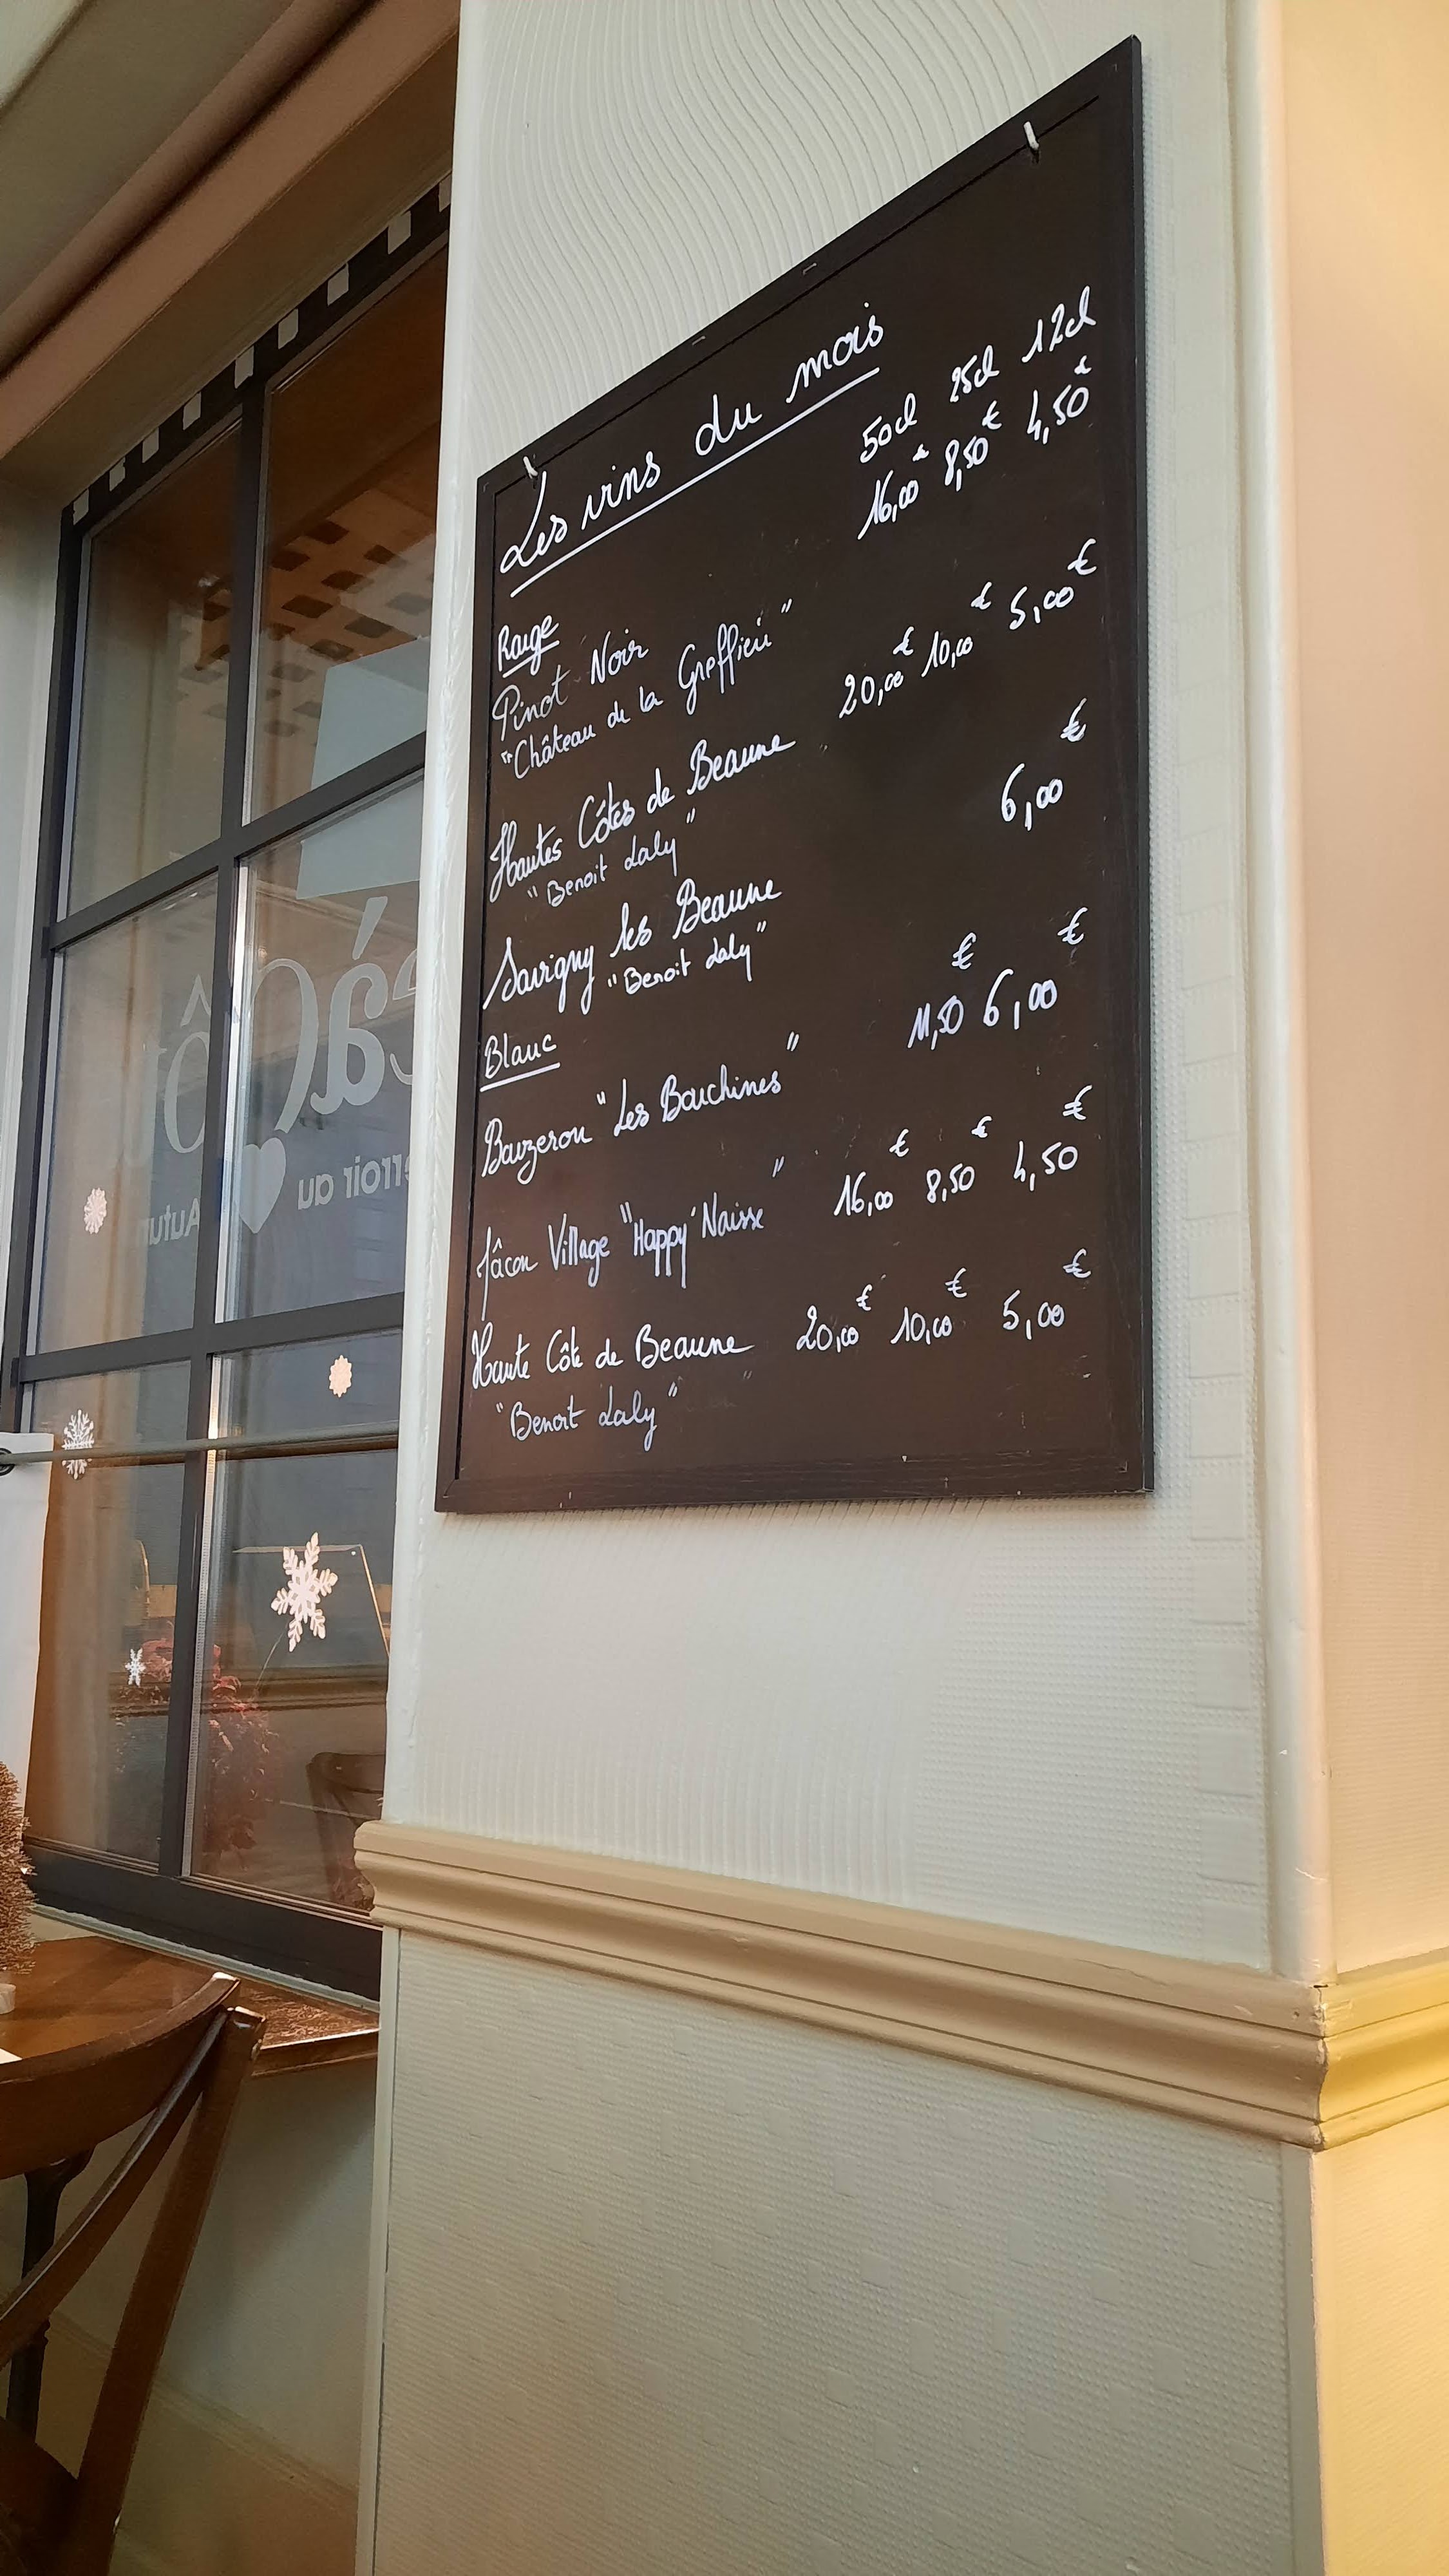 Les vins du mois
50cl 25cl 12cl
Rouge
Pinot Noir 16,00€ 8,50€ 4,50€
"Château de la Greffière"
Hautes Côtes de Beaune 20,00€ 10,00€ 5,00€
"Benoit Laly"
Savigny les Beaune 6,00€
"Benoit Laly"
Blanc
Bouzeron "Les Bouchines" 11,50€ 6,00€
Mâcon Village "Happy'Naisse" 16,00€ 8,50€ 4,50€
Haute Côte de Beaune 20,00€ 10,00€ 5,00€
"Benoit Laly"
au